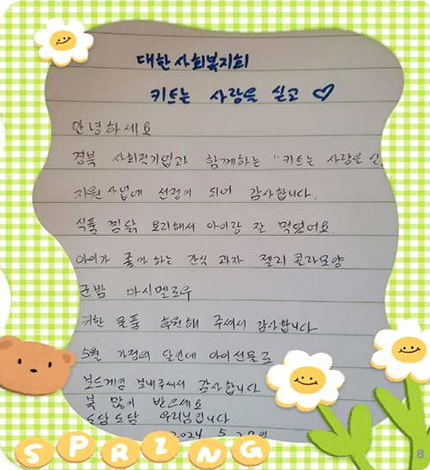 대한사회복지회
키트는 사랑을 싣고 ♡
안녕하세요
경북 사회적기업과 함께하는 "키트는 사랑을 싣
지원사업에 선정이 되어 감사합니다.
식품 찜닭 요리해서 아이랑 잘 먹었어요
아이가 좋아하는 간식 과자 젤리 콜라모양
군밤 마시멜로우
귀한 물품 후원해 주셔서 감사합니다
5월 가정의 달인데 아이선물로
보드게임 보내주셔서 감사합니다
복 많이 받으세요
도담도담 우리님입니다
2024 5
SPRING
8